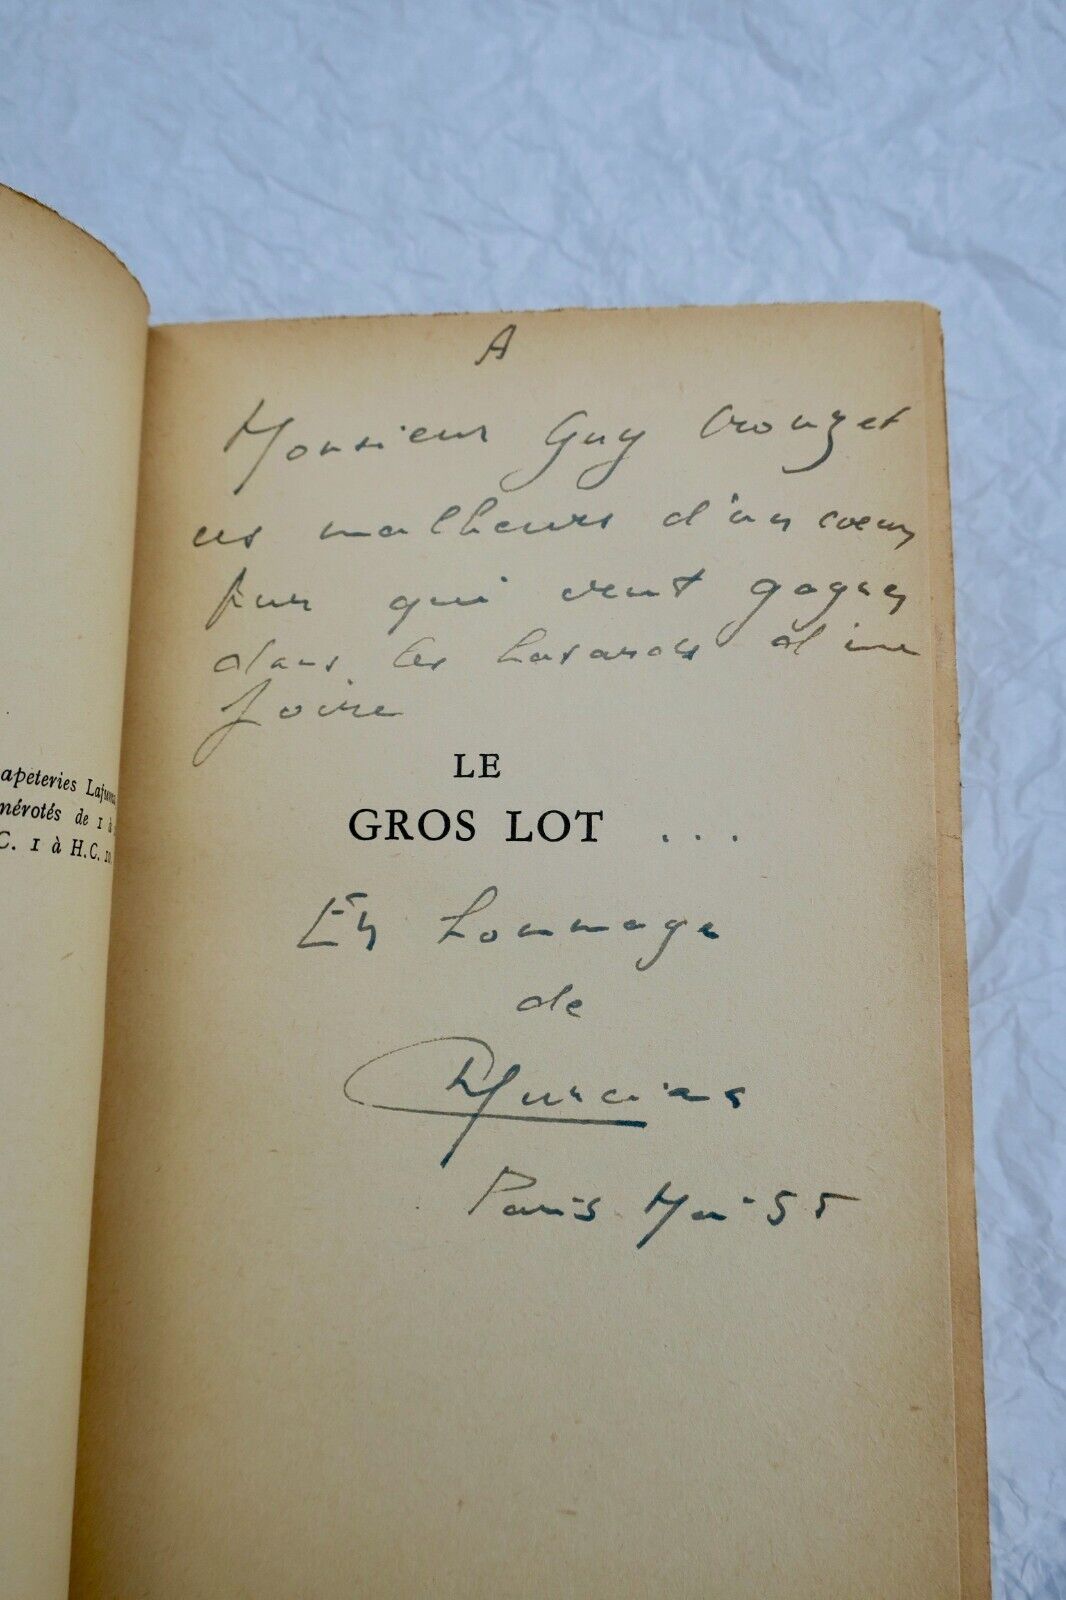 apeteries Lajuma
mérotés de 1 à
C. 1 à H.C. 10.
A
Monsieur Guy Crouzet
ces malheurs d'un coeur
pur qui veut gagner
dans les hasards d'une
foire
LE
GROS LOT ...
En hommage
de
Paris Mai 55